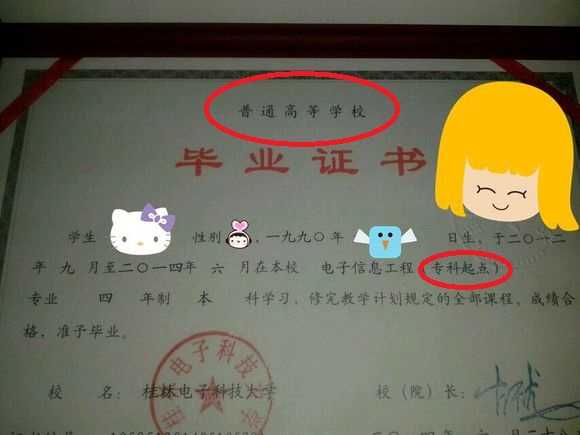 普通高等学校
毕业证书
学生 性别 ，一九九〇年 日生，于二〇一二
年 九 月至二〇一四年 六 月在本校 电子信息工程（专科起点）
专业 四 年制 本 科学习，修完教学计划规定的全部课程，成绩合
格，准予毕业。
电子科技
校 名： 桂林电子科技大学 校（院）长：